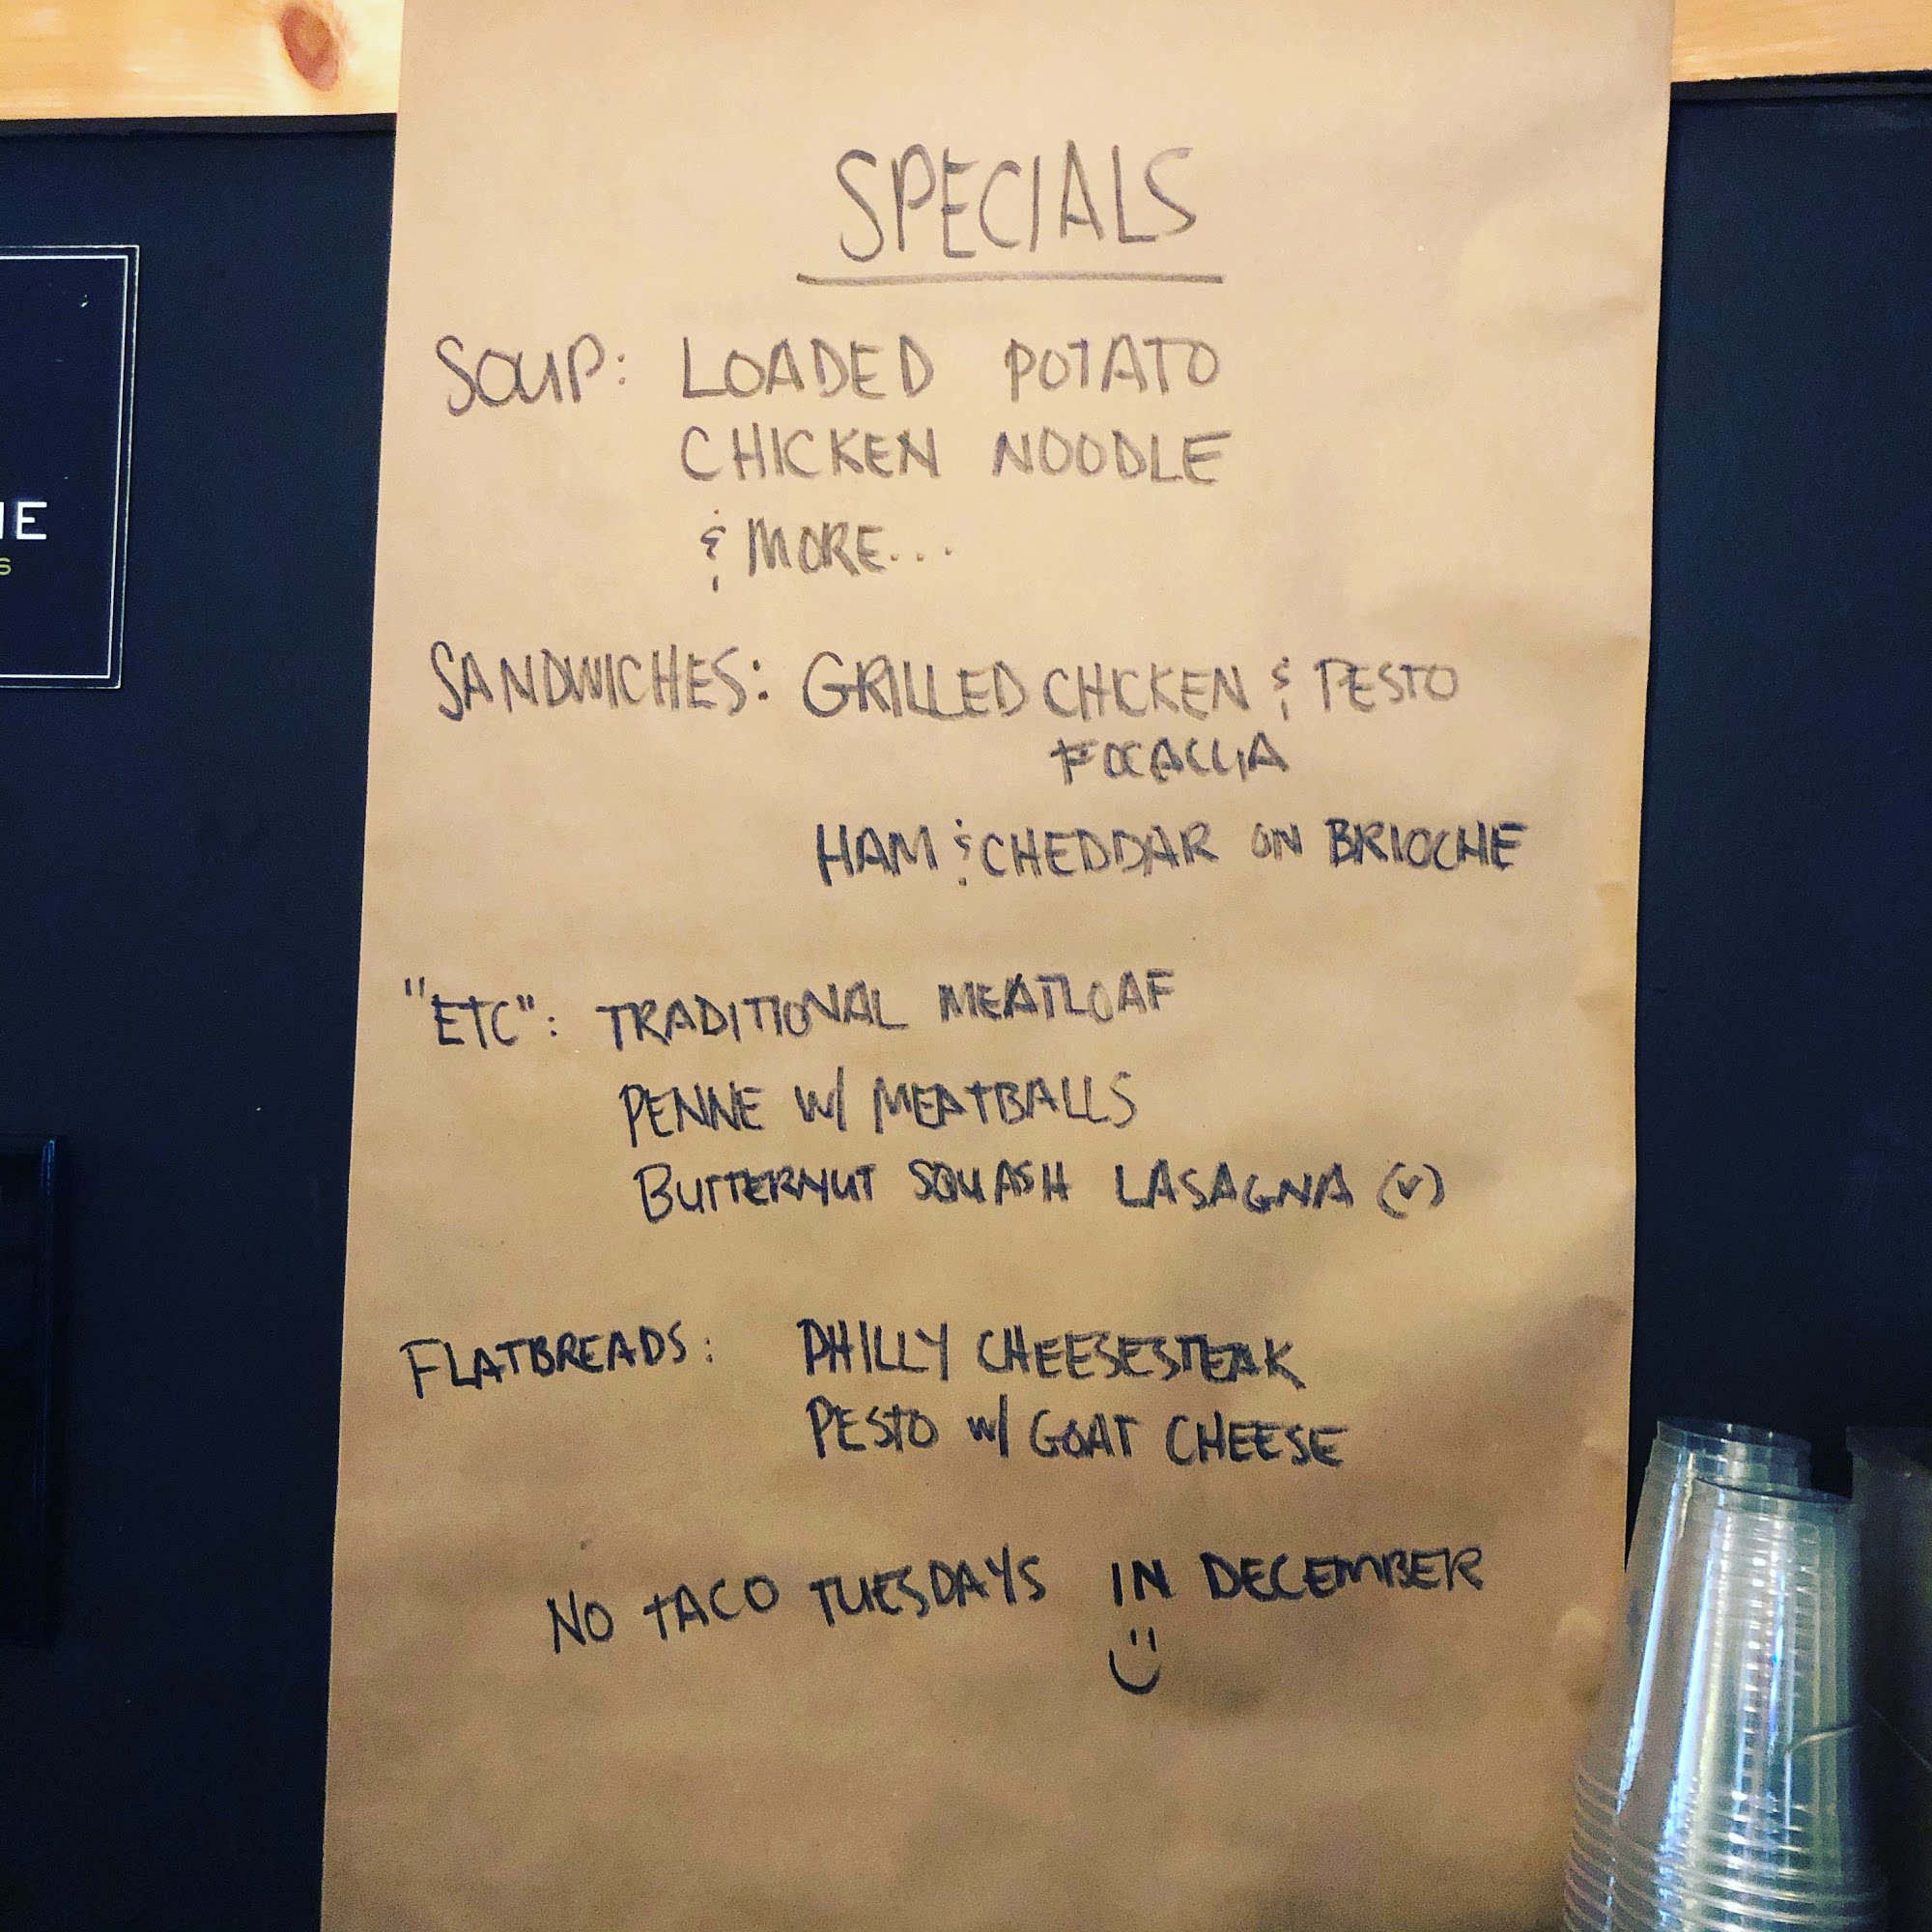 SPECIALS
SOUP: LOADED POTATO
CHICKEN NOODLE
& MORE...
SANDWICHES: GRILLED CHICKEN & PESTO
FOCACCIA
HAM & CHEDDAR ON BRIOCHE
"ETC": TRADITIONAL MEATLOAF
PENNE W/ MEATBALLS
BUTTERNUT SQUASH LASAGNA (V)
FLATBREADS: PHILLY CHEESESTEAK
PESTO W/ GOAT CHEESE
NO TACO TUESDAYS IN DECEMBER